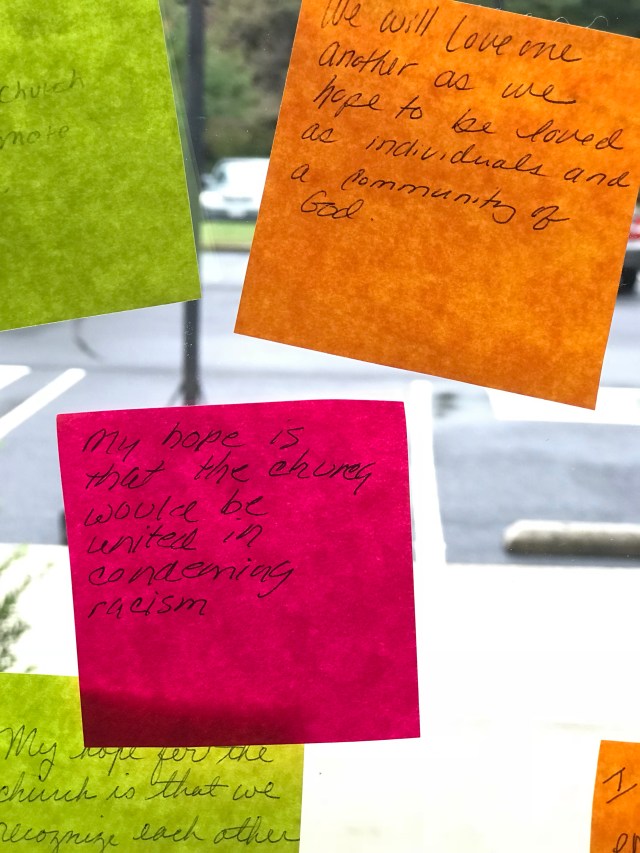 church
We will love one
another as we
hope to be loved
as individuals and
a community of
God.
My hope is
that the church
would be
united in
condeming
racism
My hope for the
church is that we
recognize each other
I